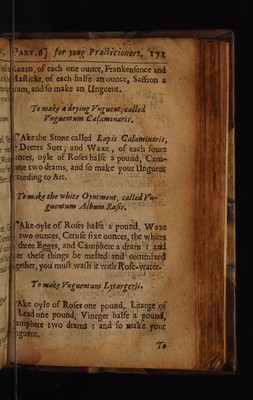 PART. 6] for yong Practicioners. 171
Rozen, of each one ounce, Frankensence and
Masticke, of each halfe an ounce, Saffron a
dram, and so make an Unguent.
To make a drying Vnguent, called
Vnguentum Calaminaris.
TAke the Stone called Lapis Calaminaris,
Deeres Suet, and Waxe, of each foure
ounces, oyle of Roses halfe a pound, Cam-
phere two drams, and so make your Unguent
according to Art.
To make the white Oyntment, called Vn-
guentum Album Rasis.
TAke oyle of Roses halfe a pound, Waxe
two ounces, Ceruse sixe ounces, the whites
three Egges, and Camphere a dram: and
after these things be melted and commixed
together, you must wash it with Rose-water.
To make Vnguentum Lytargerii.
TAke oyle of Roses one pound, Litarge of
Lead one pound, Vineger halfe a pound,
Camphere two drams: and so make your
Unguent.
To